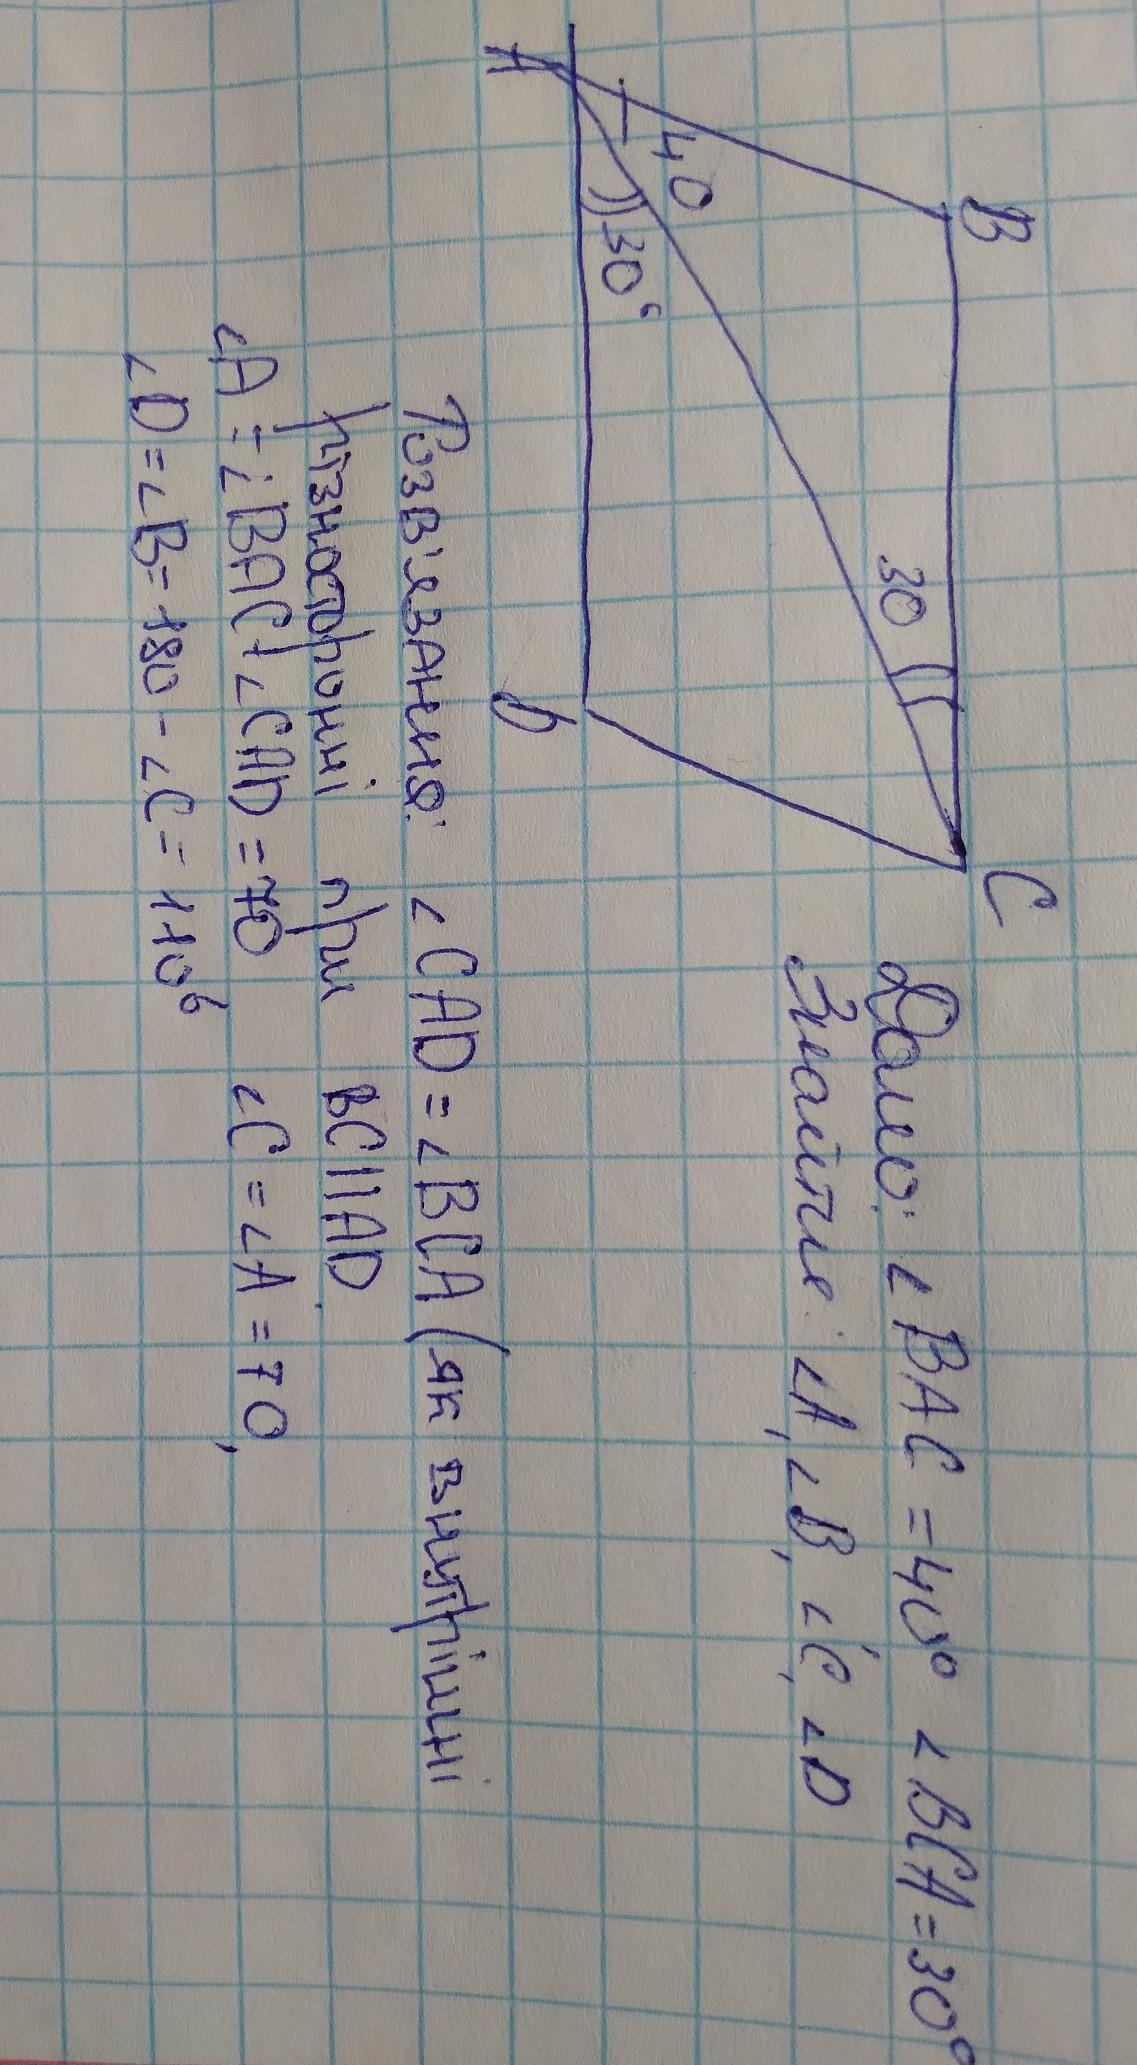 B
C
A
D
40
30°
30
Дано: ∠BAC = 40° ∠BCA = 30°
Знайти: ∠A, ∠B, ∠C, ∠D
Розв'язання: ∠CAD = ∠BCA (як внутрішні
різносторонні при BC||AD.
∠A = ∠BAC + ∠CAD = 70 ∠C = ∠A = 70,
∠D = ∠B = 180 - ∠C = 110°